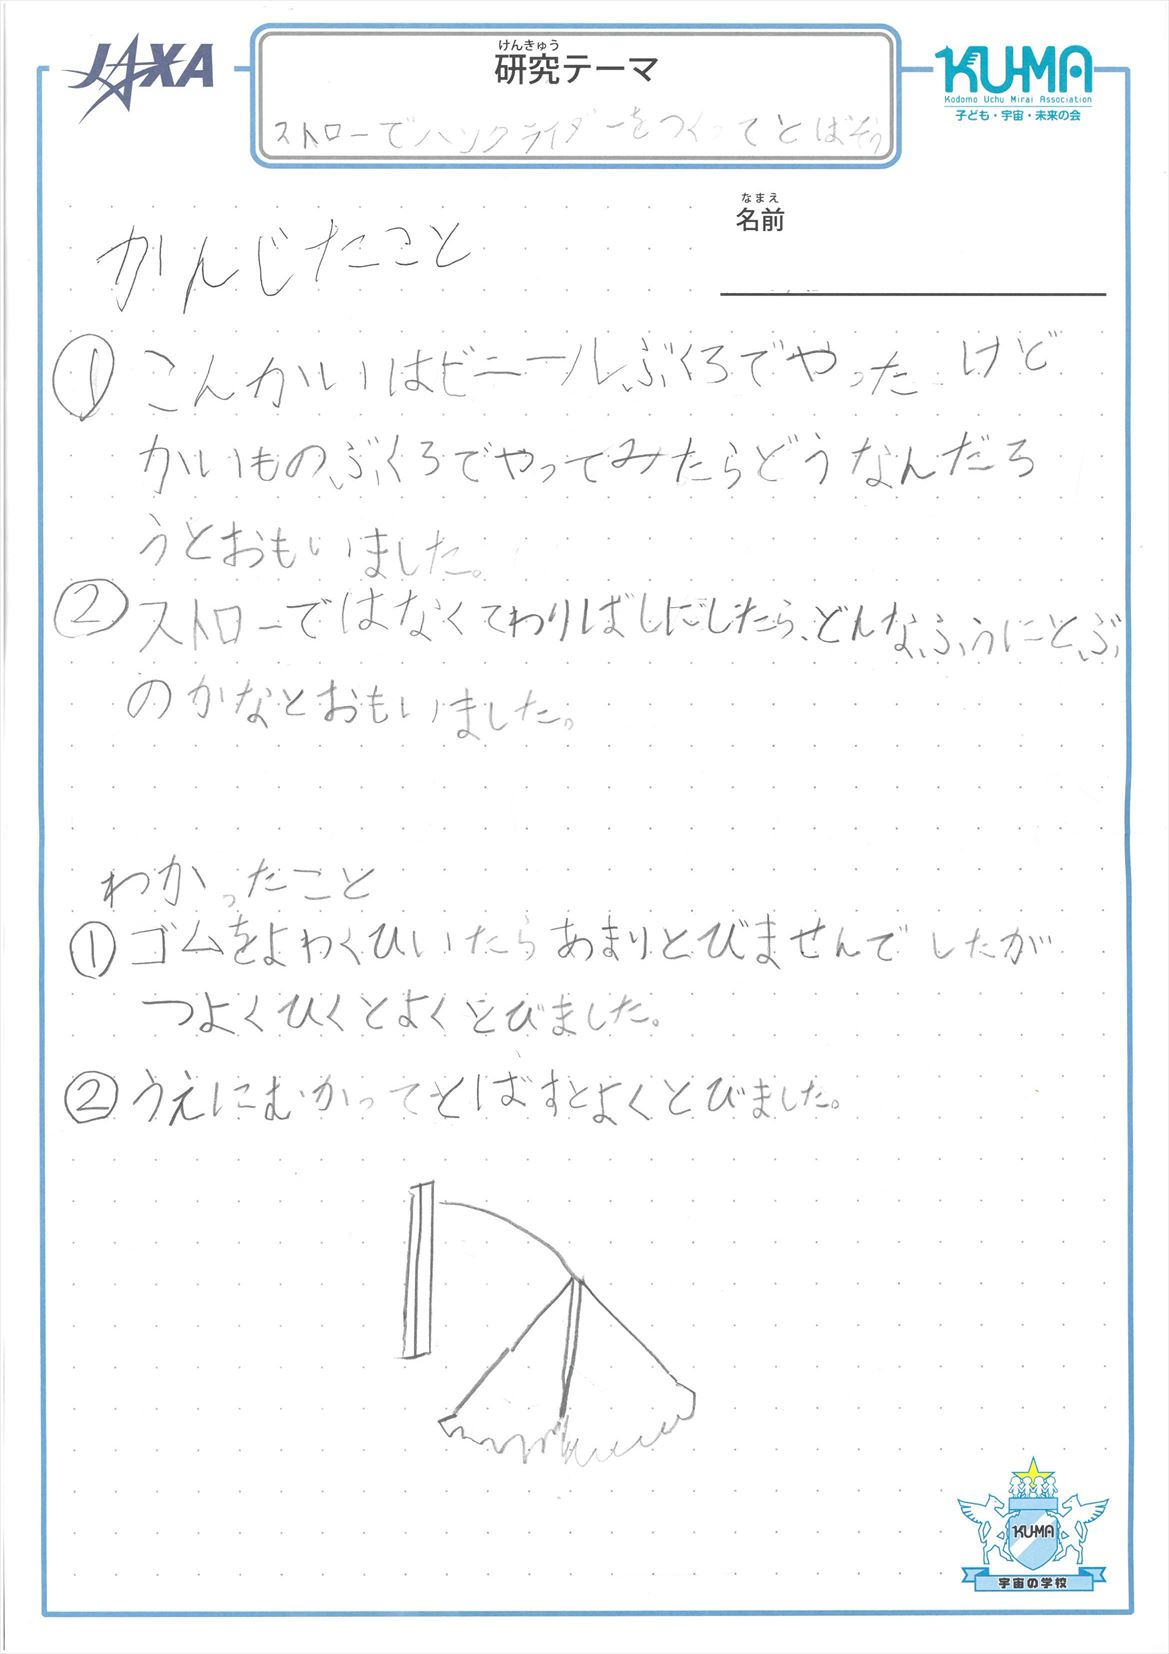 JAXA
けんきゅう
研究テーマ
KU-MA
Kodomo Uchu Mirai Association
子ども・宇宙・未来の会
ストローでハングライダーをつくってとばそう
なまえ
名前
かんじたこと
① こんかいはビニールぶくろでやったけど
かいものぶくろでやってみたらどうなんだろ
うとおもいました。
② ストローではなくてわりばしにしたら、どんなふうにとぶ
のかなとおもいました。
わかったこと
① ゴムをよわくひいたらあまりとびませんでしたが
つよくひくとよくとびました。
② うえにむかってとばすとよくとびました。
KU-MA
宇宙の学校